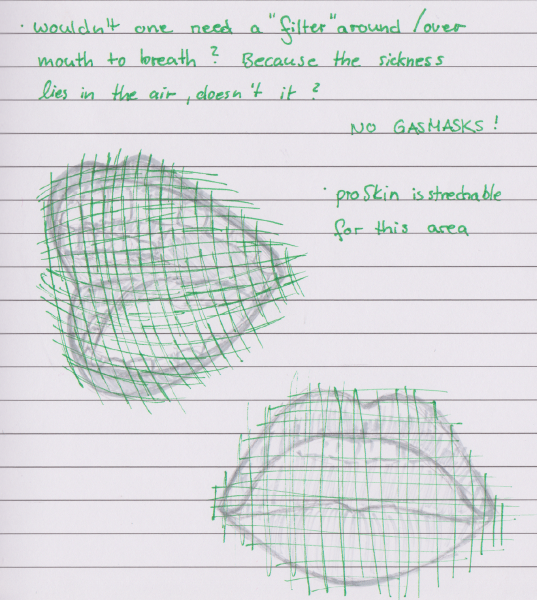 · wouldn't one need a "filter" around / over
mouth to breath? Because the sickness
lies in the air, doesn't it?
NO GASMASKS!
· proSkin is strechable
for this area